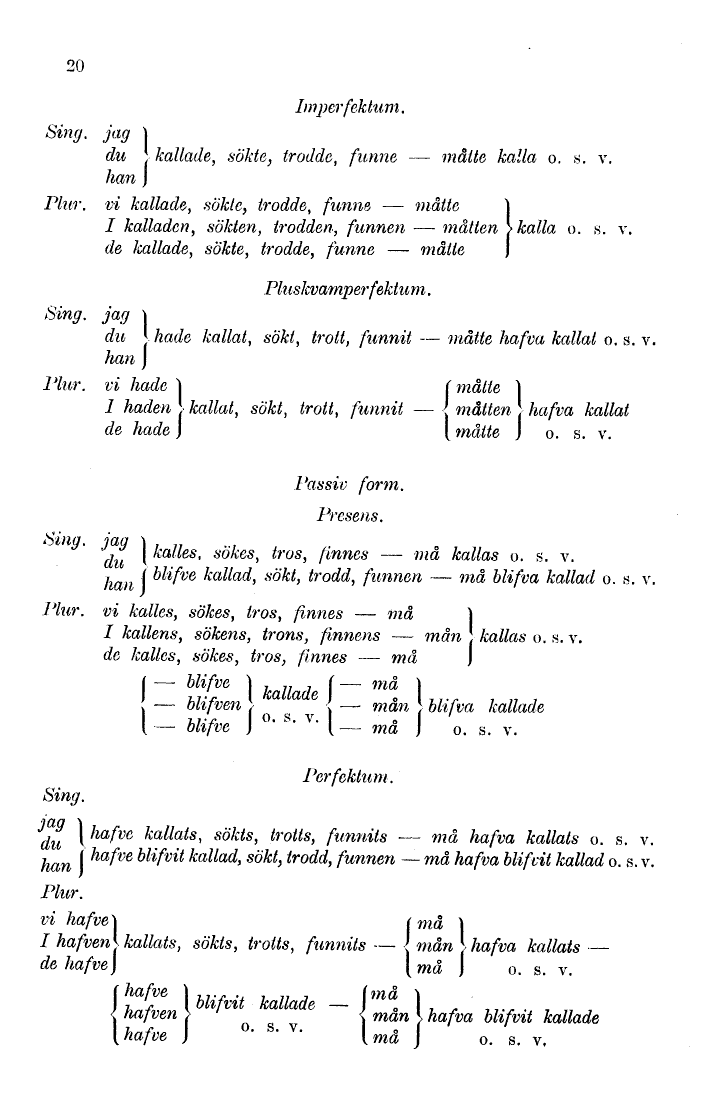 20
Imperfektum.
Sing. jag
du kallade, sökte, trodde, funne — måtte kalla o. s. v.
han
Plur. vi kallade, sökte, trodde, funne — måtte
I kalladen, sökten, trodden, funnen — måtten kalla o. s. v.
de kallade, sökte, trodde, funne — måtte
Pluskvamperfektum.
Sing. jag
du hade kallat, sökt, trott, funnit — måtte hafva kallat o. s. v.
han
Plur. vi hade måtte
I haden kallat, sökt, trott, funnit — måtten hafva kallat
de hade måtte o. s. v.
Passiv form.
Presens.
Sing. jag
du kalles, sökes, tros, finnes — må kallas o. s. v.
han blifve kallad, sökt, trodd, funnen — må blifva kallad o. s. v.
Plur. vi kalles, sökes, tros, finnes — må
I kallens, sökens, trons, finnens — mån kallas o. s. v.
de kalles, sökes, tros, finnes — må
— blifve kallade — må
— blifven — mån blifva kallade
— blifve o. s. v. — må o. s. v.
Perfektum.
Sing.
jag
du hafve kallats, sökts, trotts, funnits — må hafva kallats o. s. v.
han hafve blifvit kallad, sökt, trodd, funnen — må hafva blifvit kallad o. s. v.
Plur.
vi hafve må
I hafven kallats, sökts, trotts, funnits — mån hafva kallats —
de hafve må o. s. v.
hafve må
hafven blifvit kallade — mån hafva blifvit kallade
hafve o. s. v. må o. s. v.